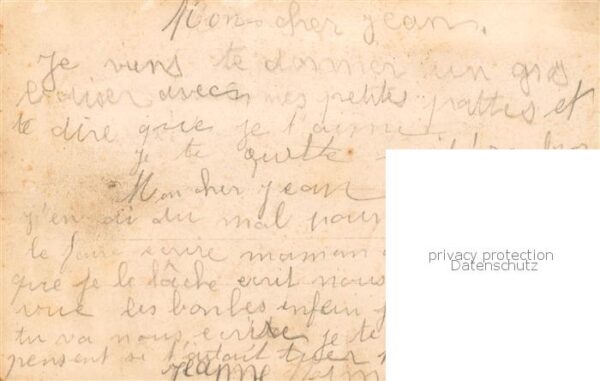 Mon cher jean.
Je viens te donner un gros
baiser avec mes petites pattes et
te dire que je t'aime
je te quitte
Mon cher jean
j'en ai du mal pour
le faire ecrire maman
que je le lâche ecrit nous
vue les bonbes enfein
tu va nous ecrire je te
pensent si
jeanne
privacy protection
Datenschutz